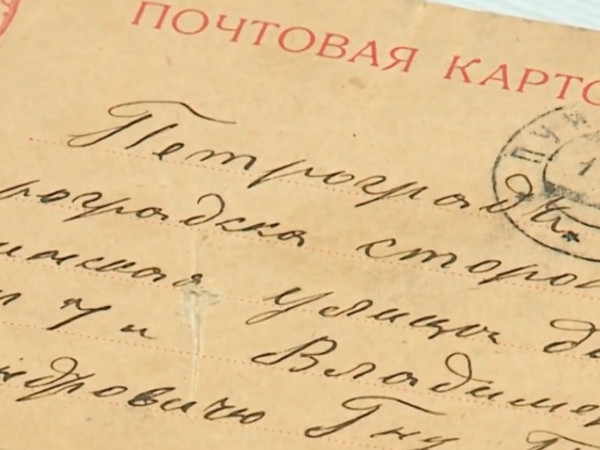 ПОЧТОВАЯ КАРТО
Петроградъ
роградска сторо
улица
7 и Владиме
ндровичу Гну